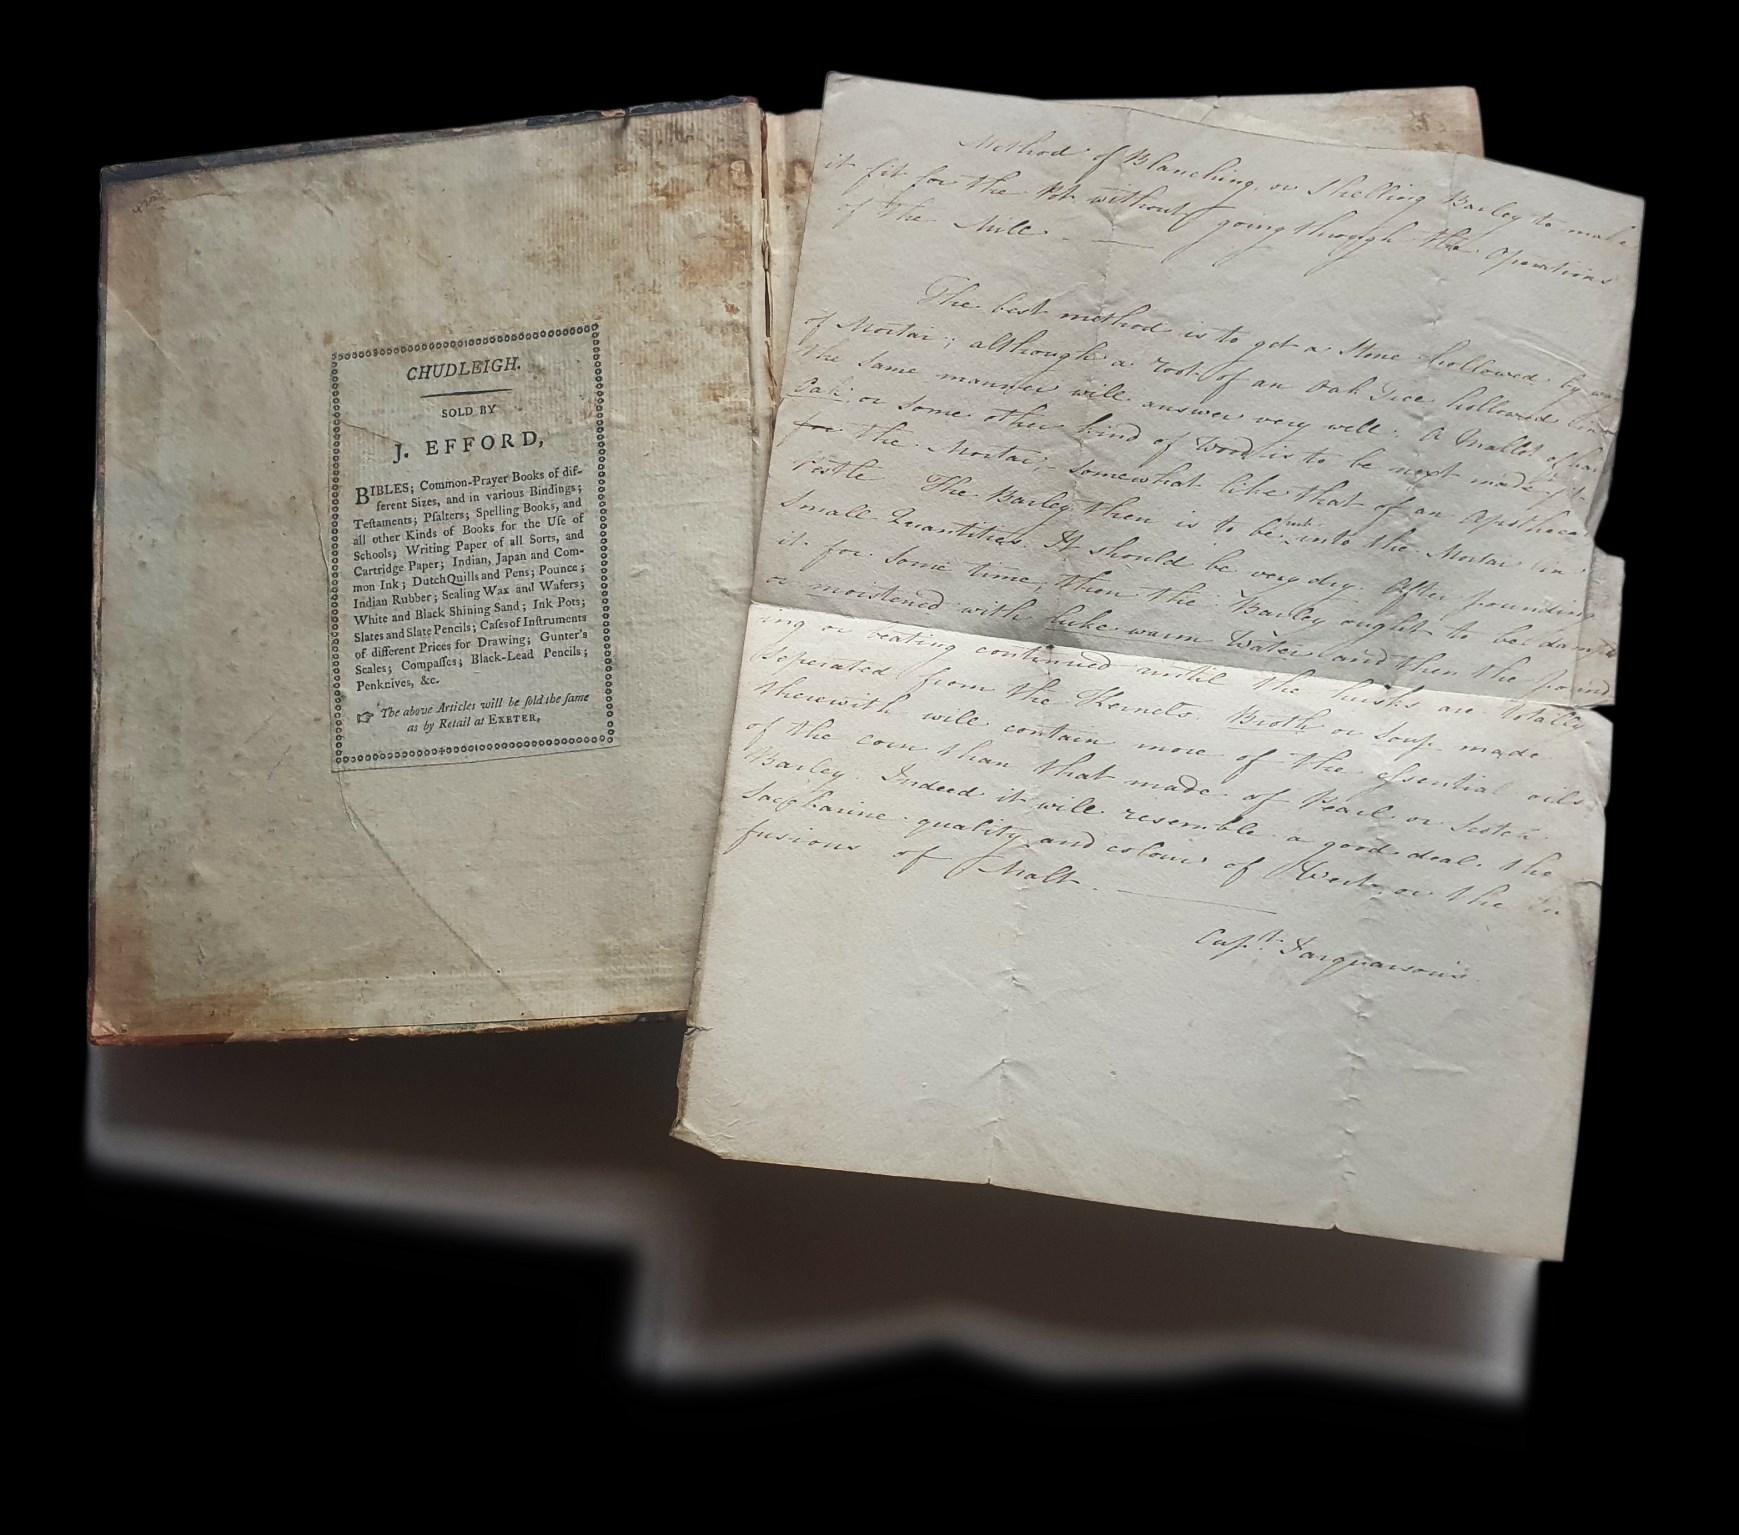 CHUDLEIGH.
SOLD BY
J. EFFORD,
BIBLES; Common-Prayer Books of dif-
ferent Sizes, and in various Bindings;
Teſtaments; Pſalters; Spelling Books, and
all other Kinds of Books for the Uſe of
Schools; Writing Paper of all Sorts, and
Cartridge Paper; Indian, Japan and Com-
mon Ink; Dutch Quills and Pens; Pounce;
Indian Rubber; Sealing Wax and Wafers;
White and Black Shining Sand; Ink Pots;
Slates and Slate Pencils; Caſes of Inſtruments
of different Prices for Drawing; Gunter's
Scales; Compaſſes; Black-Lead Pencils;
Penknives, &c.
☞ The above Articles will be ſold the ſame
as by Retail at EXETER.
Method of Blanching, or Shelling Barley to make
it fit for the Pot without going through the Operations
of the Mill. —
The best method is to get a Stone hollowed by way
of Mortar; although a root of an Oak Tree hollowed in
the same manner will answer very well. A Mallet of hard
Oak, or some other kind of Wood is to be next made
for the Mortar, somewhat like that of an
Pestle. The Barley then is to be put into the Mortar in
small Quantities. It should be very dry. After pounding
it for some time, then the Barley ought to be damped
or moistened with luke warm Water and then the pound-
ing or beating continued until the husks are totally
seperated from the Kernels. Broth or Soup made
therewith will contain more of the eſsential oils
of the corn than that made of Pearl or Scotch
Barley. Indeed it will resemble a good deal the
Saccharine quality and colour of Wort, or the In
fusions of Malt. —
Capt. Farquarson's